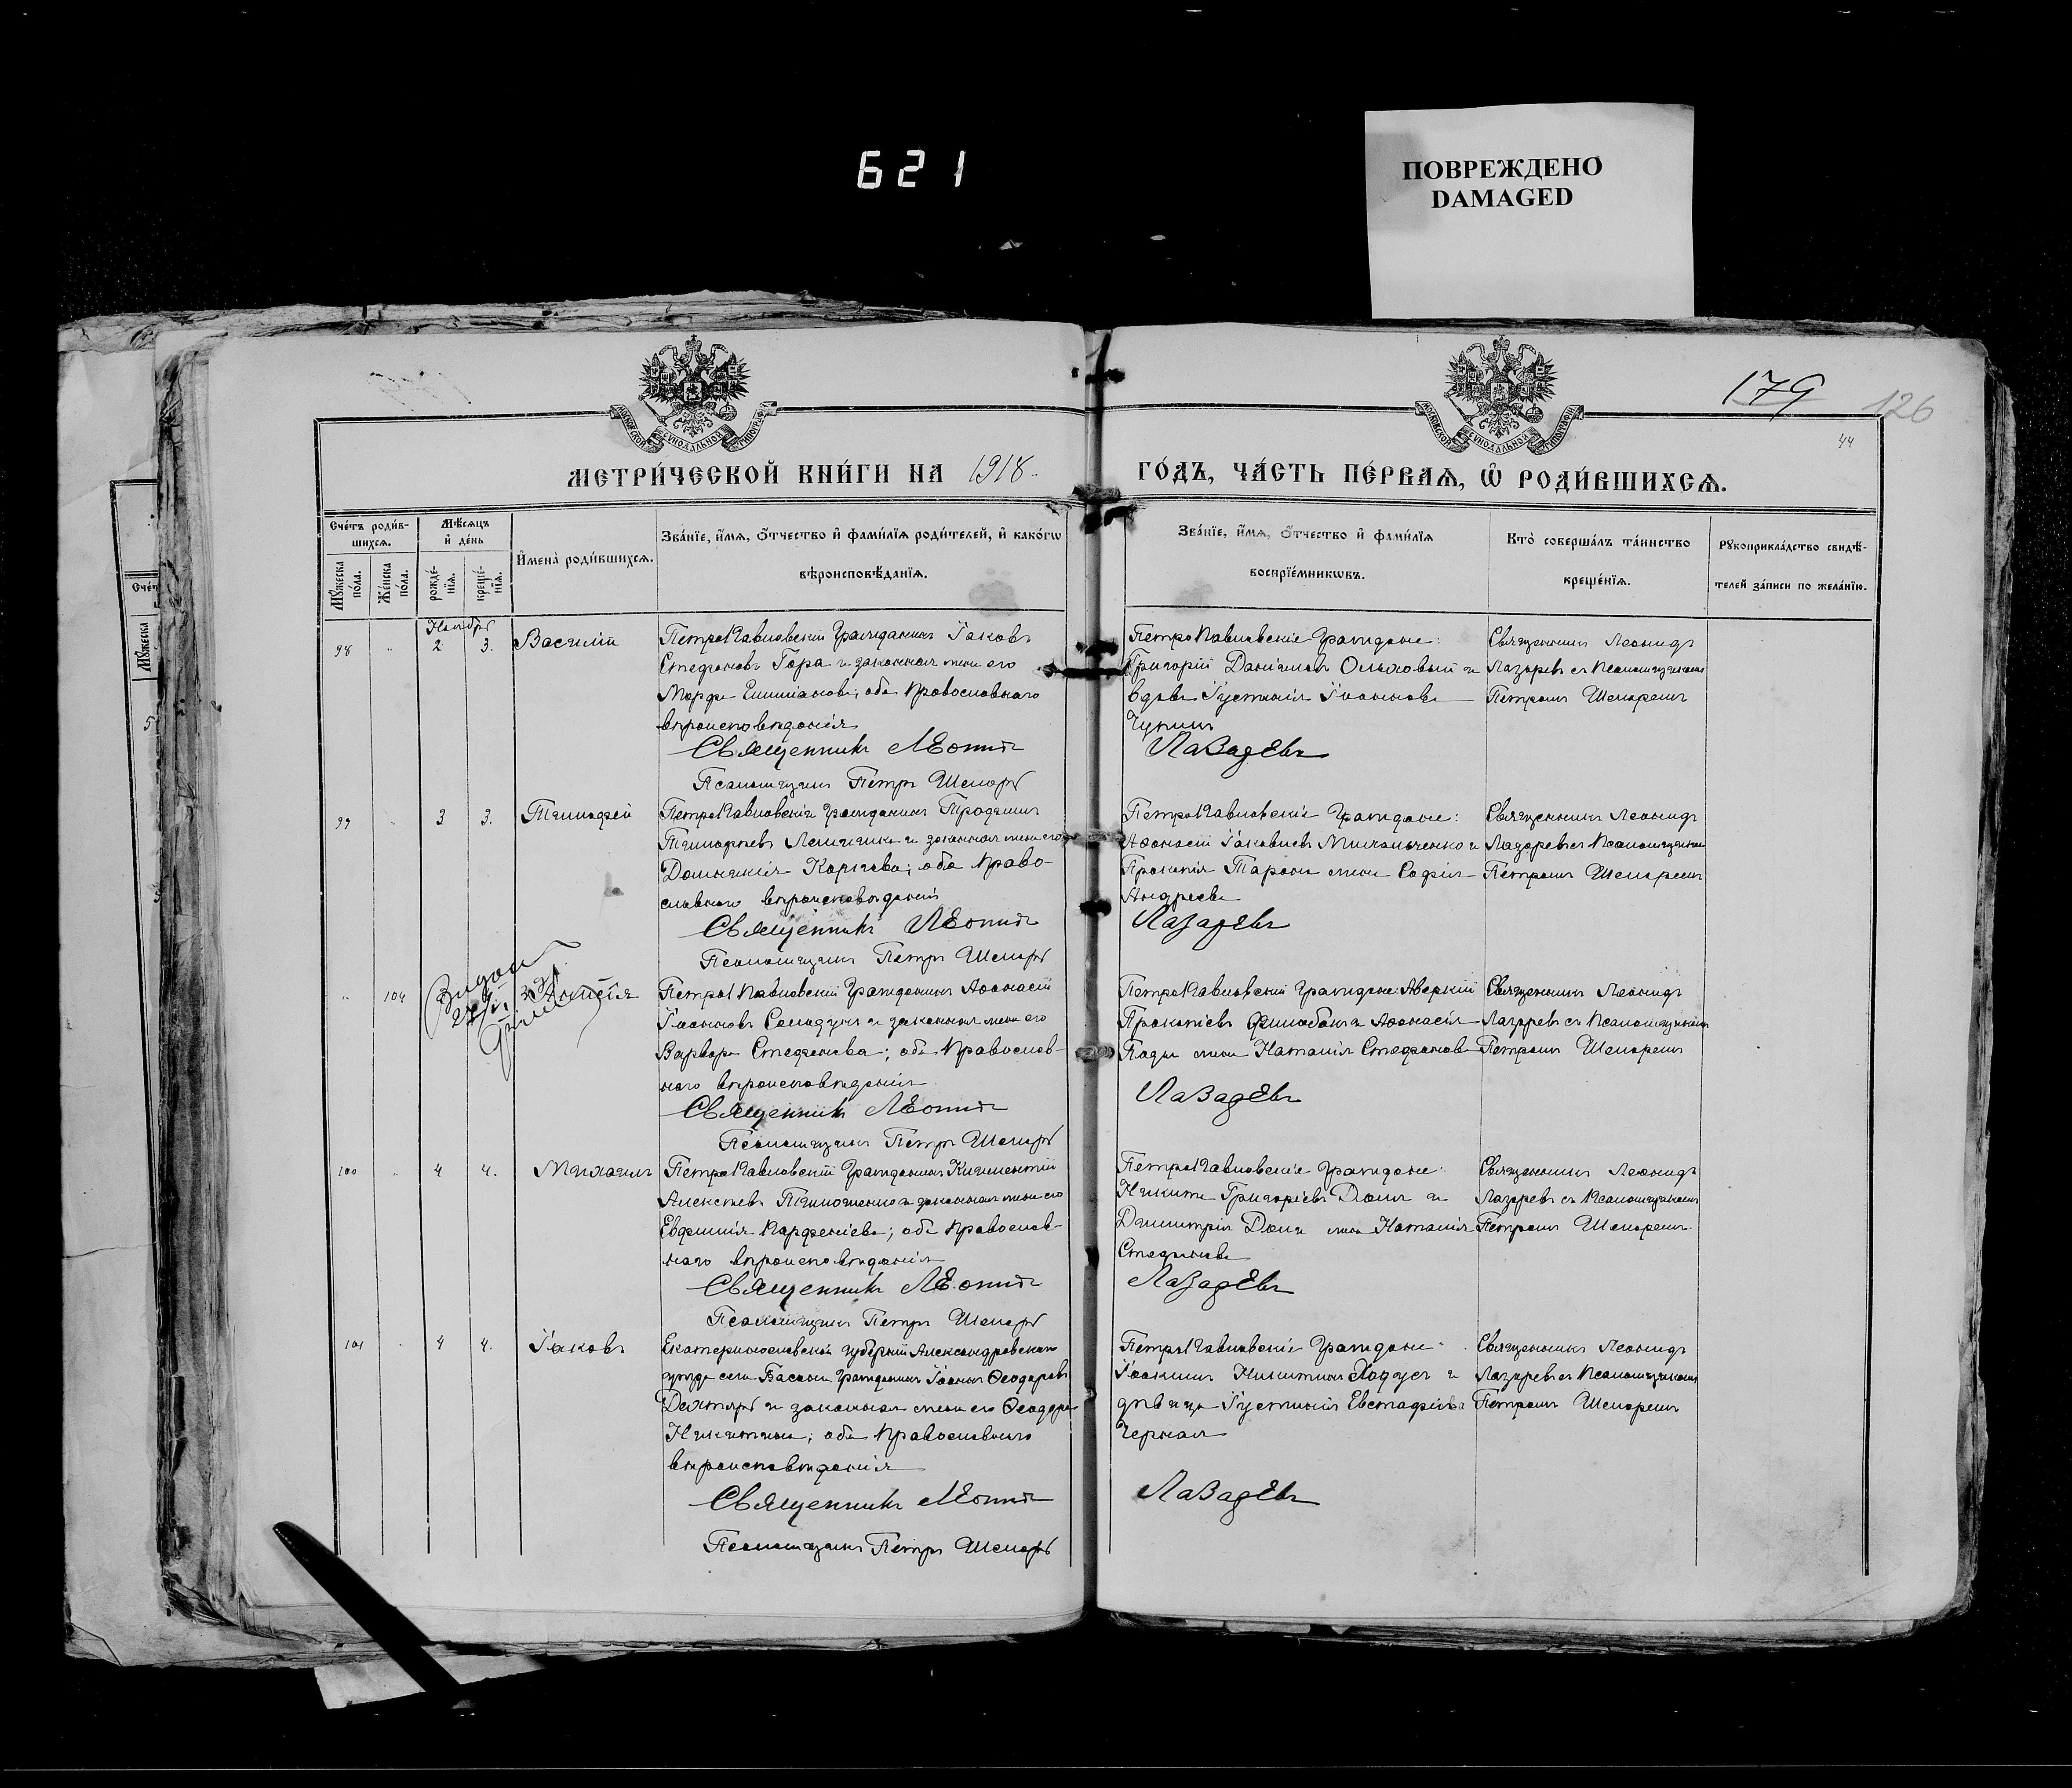 621
ПОВРЕЖДЕНО
DAMAGED
179
126
44
МОСКОВСКОЙ СѴНОДАЛЬНОЙ ТИПОГРАФІИ
МОСКОВСКОЙ СѴНОДАЛЬНОЙ ТИПОГРАФІИ
МЕТРИ́ЧЕСКОЙ КНИ́ГИ НА 1918
ГО́ДЪ, ЧА́СТЬ ПЕ́РВАѦ, Ѡ҆ РОДИ́ВШИХСѦ.
Сче́тъ роди́в-
шихсѧ.
Мꙋ́жеска по́ла.
Же́нска по́ла.
Мѣ́сѧцъ
и҆ де́нь
рожде́-нїѧ.
креще́-нїѧ.
И҆мена̀ роди́вшихсѧ.
Зва́нїе, и҆́мѧ, ѻ҆́тчество и҆ фами́лїѧ роди́телей, и҆ како́гѡ
вѣроисповѣ́данїѧ.
Зва́нїе, и҆́мѧ, ѻ҆́тчество и҆ фами́лїѧ
воспрїе́мникѡвъ.
Кто̀ соверша́лъ та́инство
креще́нїѧ.
Рꙋкоприкла́дство свидѣ́-
телей за́писи по жела́нїю.
Ноябрь
98 " 2 3. Василій
Петро Павловскій Гражданинъ Іаковъ
Стефановъ Гора и законная жена его
Марфа Емиліанова; оба Православнаго
вѣроисповѣданія
Священникъ Леонидъ
Псаломщикъ Петръ Шепарь
Петро Павловскіе Граждане:
Григорій Даніиловъ Ольховый и
вдова Іустинія Іоаннова
Лазаревъ
Священникъ Леонидъ
Лазаревъ съ Псаломщикомъ
Петромъ Шепаремъ
99 " 3 3. Тимофей
Петро Павловскій Гражданинъ Трофимъ
Тимофеевъ и законная жена его
Домникія Карпова; оба Право-
славнаго вѣроисповѣданія
Священникъ Леонидъ
Псаломщикъ Петръ Шепарь
Петро Павловскіе Граждане:
Аѳанасій Іаковлевъ Михальченко и
Прокопія Тарана жена Софія
Андреева
Лазаревъ
Священникъ Леонидъ
Лазаревъ съ Псаломщикомъ
Петромъ Шепаремъ
" 104
Петро Павловскій Гражданинъ Аѳанасій
Іоанновъ и законная жена его
Варвара Стефанова; оба Православ-
наго вѣроисповѣданія
Священникъ Леонидъ
Псаломщикъ Петръ Шепарь
Петро Павловскій Граждане: Аверкій
Прокопіевъ и Аѳанасія
жена Наталія Стефанова
Лазаревъ
Священникъ Леонидъ
Лазаревъ съ Псаломщикомъ
Петромъ Шепаремъ
100 " 4 4. Михаилъ
Петро Павловскій Гражданинъ Климентій
Алексѣевъ Тимошенко и законная жена его
Евфимія Парфеніева; оба Православ-
наго вѣроисповѣданія
Священникъ Леонидъ
Псаломщикъ Петръ Шепарь
Петро Павловскіе Граждане:
Никита Григоріевъ и
Димитрія жена Наталія
Стефанова
Лазаревъ
Священникъ Леонидъ
Лазаревъ съ Псаломщикомъ
Петромъ Шепаремъ.
101 " 4 4. Іаковъ
Екатеринославской губерніи Александровскаго
уѣзда села Басани Гражданинъ Іоаннъ Ѳеодоровъ
Дехтярь и законная жена его Ѳеодора
Никитина; оба Православнаго
вѣроисповѣданія
Священникъ Леонидъ
Псаломщикъ Петръ Шепарь
Петро Павловскіе Граждане:
Іоакимъ Никитинъ и
дѣвица Іустинія Евстафіева
Черная
Лазаревъ
Священникъ Леонидъ
Лазаревъ съ Псаломщикомъ
Петромъ Шепаремъ